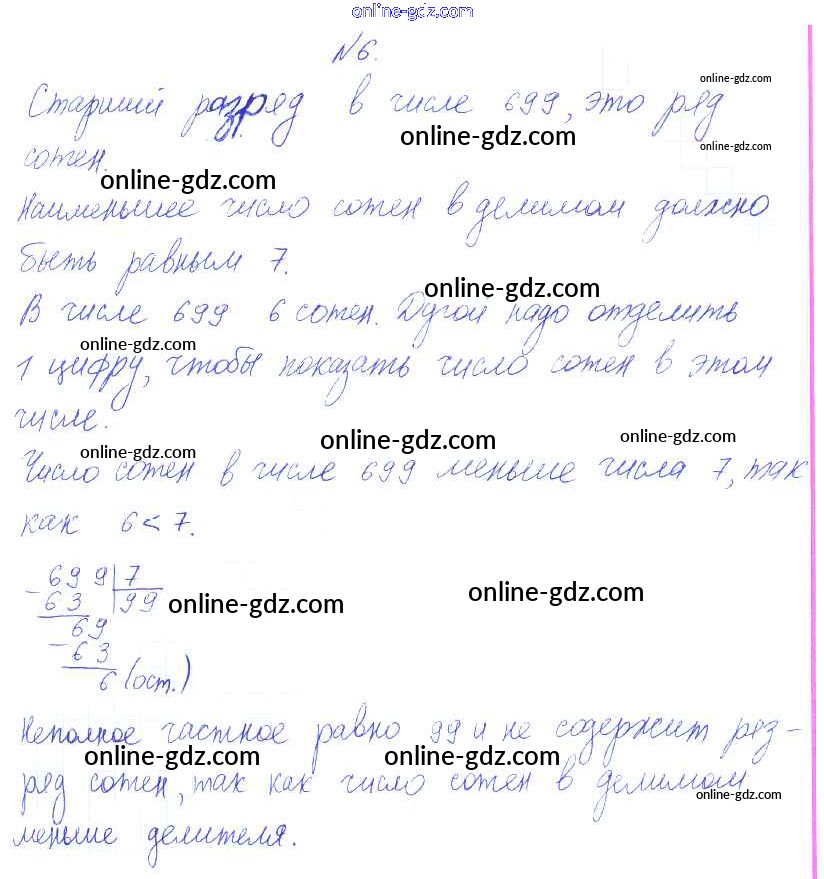 online-gdz.com
№6.
online-gdz.com
Старший разряд в числе 699, это ряд
online-gdz.com
online-gdz.com
сотен.
online-gdz.com
Наименьшее число сотен в делимом должно
быть равным 7.
online-gdz.com
В числе 699 6 сотен. Дугой надо отделить
1 цифру, чтобы показать число сотен в этом
online-gdz.com
числе.
online-gdz.com
online-gdz.com
online-gdz.com
Число сотен в числе 699 меньше числа 7, так
как 6 < 7.
699 | 7
- 63 | 99
online-gdz.com
online-gdz.com
69
- 63
6 (ост.)
Неполное частное равно 99 и не содержит раз-
online-gdz.com
online-gdz.com
ряд сотен, так как число сотен в делимом
online-gdz.com
меньше делителя.